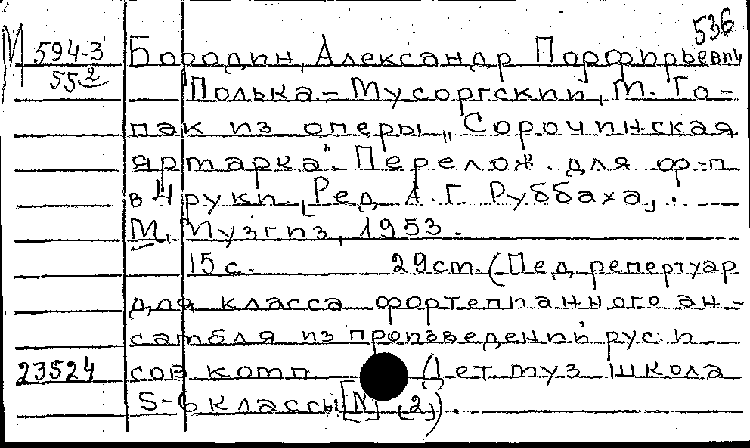 536
М 594-3 Бородин, Александр Порфирьевич
55 2 Полька – Мусоргский, М. Го-
пак из оперы „Сорочинская
ярмарка". Перелож. для ф-п
в 4 руки, [Ред. А. Г. Руббаха].
М., Музгиз, 1953.
15 с. 29 cm. (Пед. репертуар
для класса фортепианного ан-
самбля из произведений рус. и
23524 сов. комп. Дет. муз. школа
5-6 классы [N] 2).